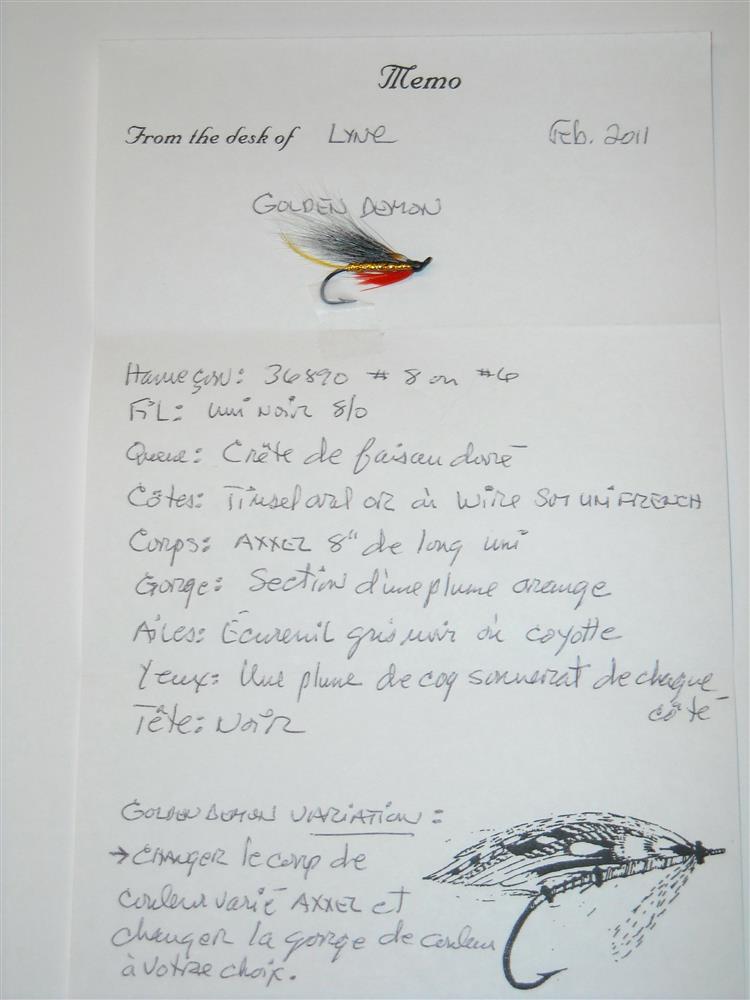 Memo
From the desk of Lyne Feb. 2011
GOLDEN DEMON
Hameçon: 36890 # 8 ou #6
FiL: uni noir 8/0
Queue: Crête de faisan doré
Côtes: Tinsel oval or ou wire SOIT UNI FRENCH
Corps: AXXEL 8" de long uni
Gorge: Section d'une plume orange
Ailes: Écureuil gris noir ou coyotte
Yeux: Une plume de coq sonnerat de chaque
côté
Tête: Noir
GOLDEN DEMON VARIATION:
→ CHANGER le corp de
couleur varié AXXEL et
changer la gorge de couleur
à votre choix.